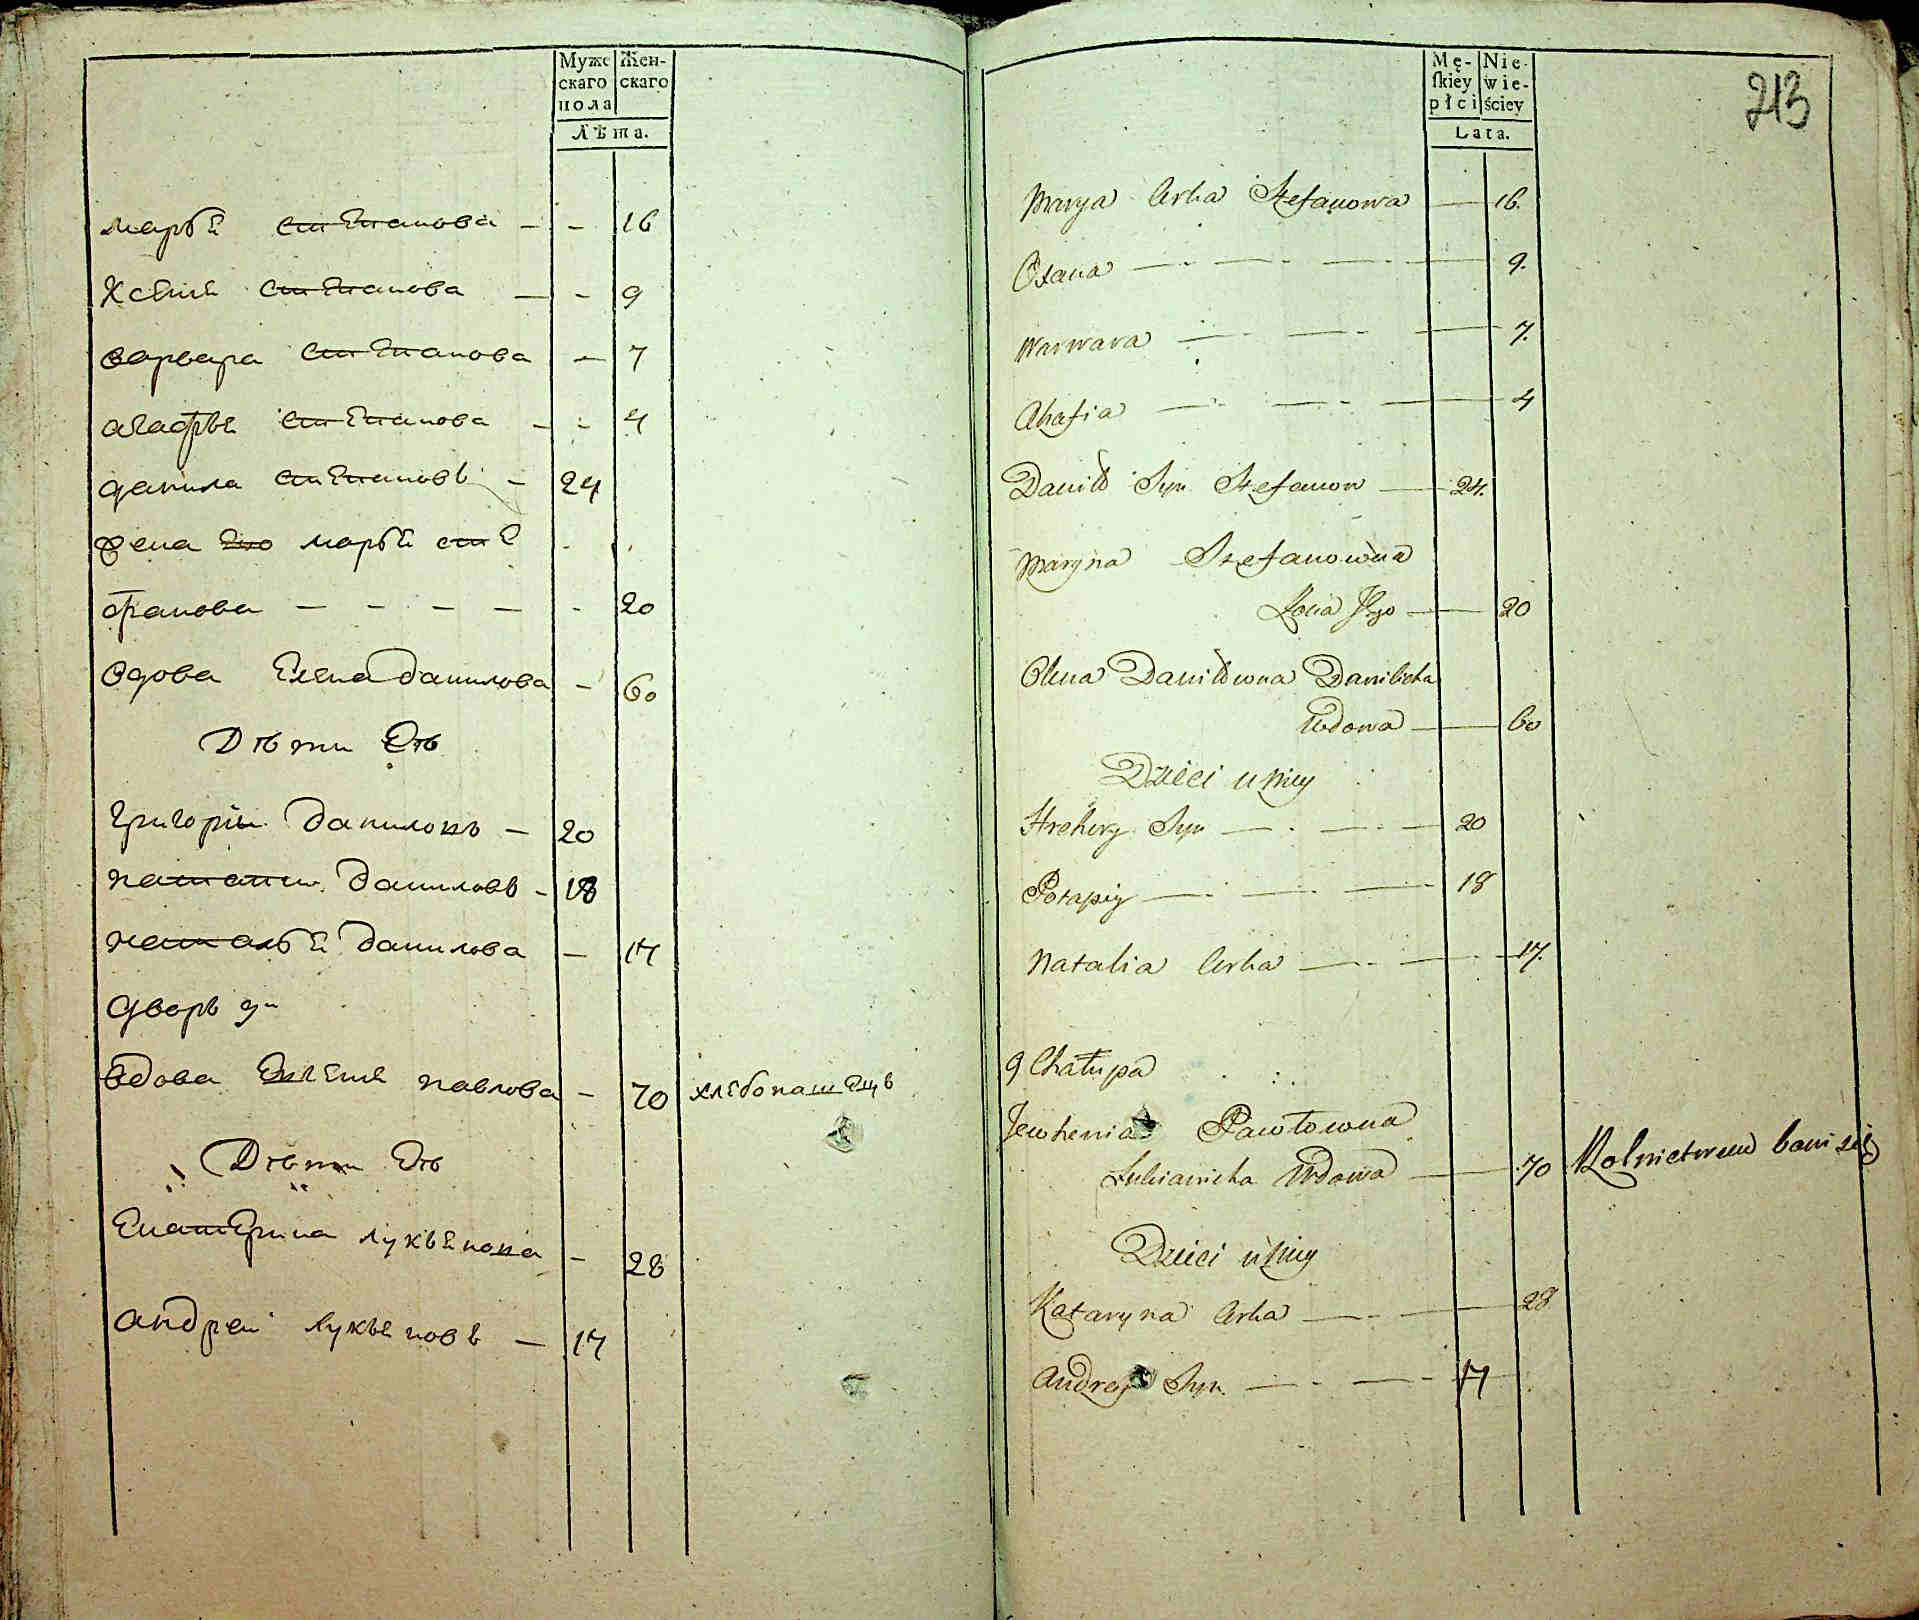 Муже
скаго
пола
Жен-
скаго
Лѣта.
марья степанова - - 16
Ксения степанова - - 9
варвара степанова - 7
агафья степанова - - 4
данила степановъ - 24
жена его марья сте
фанова - - - - - 20
вдова Елена данилова - 60
Дѣти Еѣ
григории даниловъ - 20
патапи даниловъ - 18
наталья данилова - 17
дворъ 9й
вдова Евгения павлова - 70 хлебопашецъ
Дѣти Еѣ
Екатерина лукьянова - 28
андреи лукьяновъ - 17
Mę-
ſkiey
płci
Nie-
wie-
ściey
Lata.
213
Marya Corka Stefanowa — 16.
Oxana — 9.
Warwara — 7.
Ahafia — 4
Daniło Syn Stefanow — 24.
Maryna Stefanowna
Żona Jego — 20
Olena Daniłowna Danilicha
Wdowa — 60
Dzieci u Niey
Hrehory Syn — 20
Potapiy — 18
Natalia Corka — 17.
9 Chałupa
Jewhenia Pawłowna
Łukianicha Wdowa — 70 Rolnictwem bawi się
Dzieci u Niey
Kataryna Corka — 28
Andrey Syn — 17